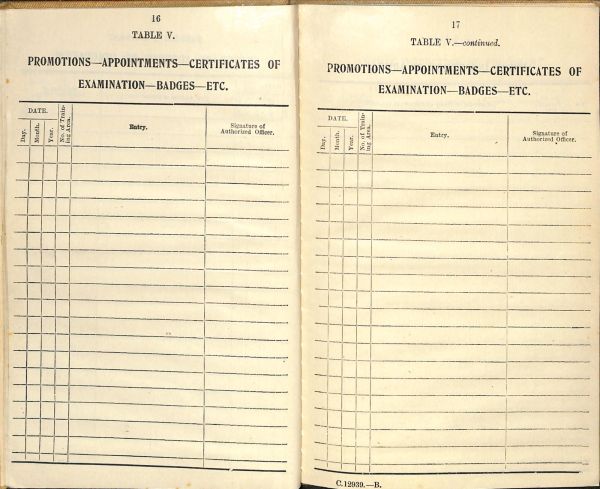 16
TABLE V.
PROMOTIONS—APPOINTMENTS—CERTIFICATES OF
EXAMINATION—BADGES—ETC.
DATE.
Day.
Month.
Year.
No. of Train-
ing Area.
Entry.
Signature of
Authorized Officer.
17
TABLE V.—continued.
PROMOTIONS—APPOINTMENTS—CERTIFICATES OF
EXAMINATION—BADGES—ETC.
DATE.
Day.
Month.
Year.
No. of Train-
ing Area.
Entry.
Signature of
Authorized Officer.
C.12939.—B.